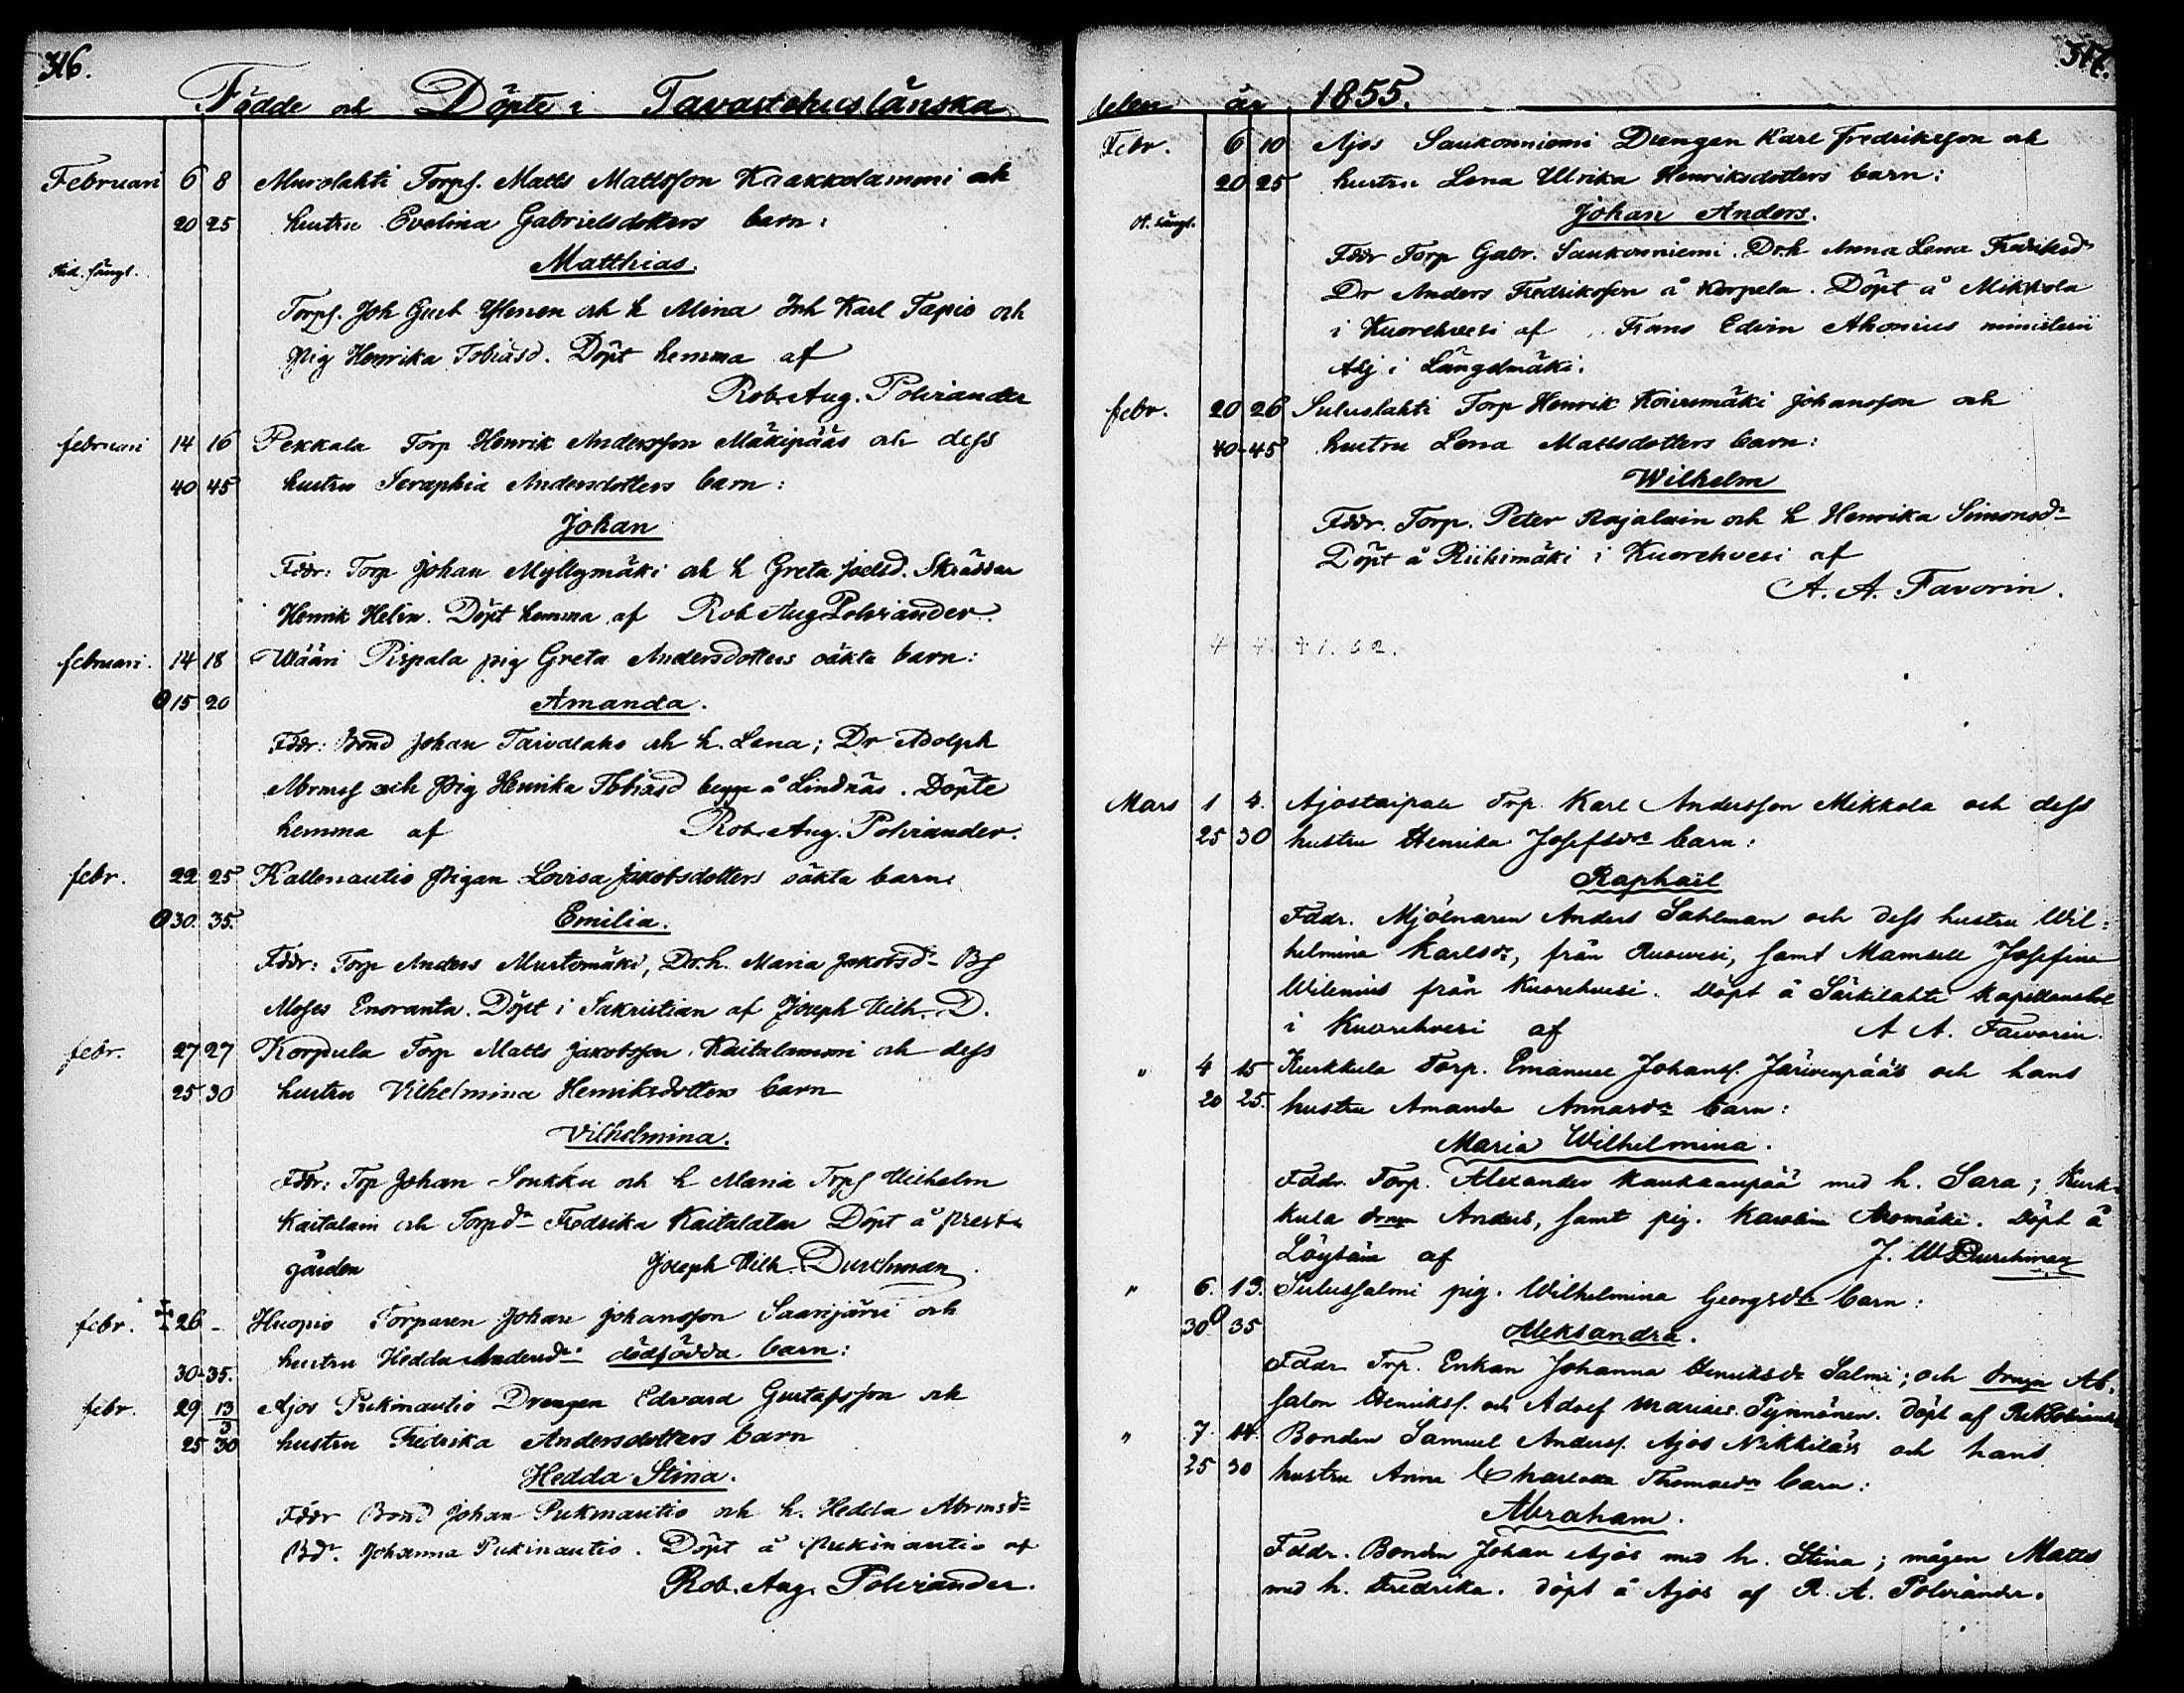 316.
Födde och Döpte i Tavastehuslänska
Februari 6 8 Murolahti Torps. Matts Mattsson Kaakkolammi och
20 25 hustru Evelina Gabrielsdotters barn:
Matthias.
Torps. Joh Gust Yltenen och h Mina Inh Karl Tapio och
Pig Henrika Tobiasd. Döpt hemma af
Rob. Aug. Polviander
februari 14 16 Pekkala Torp Henrik Andersson Mäkipääs och dess
40 45 hustru Seraphia Andersdotters barn:
Johan
Fddr: Torp Johan Myllymäki och h Greta Joelsd. Skräddar
Henrik Helin. Döpt hemma af Rob Aug Polviander.
februari. 14 18 Wääri Pispala pig Greta Andersdotters oäkta barn:
15 20 Amanda.
Fddr: Bond Johan Taivalaho och h. Lena; Dr Adolph
Abrmss och Pig Henrika Tobiasd begge å Lindnäs. Döpte
hemma af Rob. Aug. Polviander.
febr. 22 25 Kallenautio Pigan Lovisa Jakobsdotters oäkta barn:
30. 35. Emilia.
Fddr: Torp Anders Murtomäki, Dr.h. Maria Jakobsdr Bs
Moses Enoranta. Döpt i Sakristian af Joseph Vilh. D.
febr. 27 27 Korpula Torp Matts Jakobsson Kaitalammi och dess
25 30 hustru Vilhelmina Henriksdotters barn
Vilhelmina.
Fddr: Torp Johan Soukku och h Maria Trps Vilhelm
Kaitalain och Torpdr Fredrika Kaitalatar Döpt å prest
gården Joseph Vilh. Durchman.
febr. 26 - Huopio Torparen Johan Johansson Saarijärvi och
30-35. hustru Hedda Andersdrs dödfödda barn:
febr. 29 13/3 Ajos Pukinautio Drengen Edvard Gustafsson och
25 30 hustru Fredrika Andersdotters barn
Hedda Stina.
Fddr Bond Johan Pukinautio och h. Hedda Abrmsdr
Bdr. Johanna Pukinautio. Döpt å Pukinautio af
Rob. Aug. Polviander.
317.
delen år 1855.
Febr. 6 10 Ajos Saukonniemi Drengen Karl Fredriksson och
20 25 hustru Lena Ulrika Henriksdotters barn:
Johan Anders.
Fddr Torp Gabr. Saukonniemi. Dr.h Anna Lena Fredriksdr
Dr Anders Fredriksson å Korpela. Döpt å Mikkola
i Kuorehvesi af Frans Edvin Ahonius ministerii
Adj i Längelmäki.
febr. 20 26 Suluslahti Torp Henrik Koivumäki Johansson och
40-45 hustru Lena Mattsdotters barn:
Wilhelm
Fddr. Torp. Peter Rajalain och h Henrika Simonsdr
Döpt å Riihimäki i Kuorehvesi af
A. A. Favorin.
Mars 1 4. Ajostaipale Trp. Karl Andersson Mikkola och dess
25 30 hustru Henrika Josefsdrs barn:
Raphaël
Fddr. Mjölnaren Anders Sahlman och dess hustru Wil=
helmina Karlsdr, från Ruovesi, samt Mamsell Josefina
Wilenius från Kuorehvesi. Döpt å Särkilahti Kapellansbol
i Kuorehvesi af A A. Favorin.
" 4 15 Kurkkula Torp. Emanuel Johanss. Järvenpääs och hans
20 25. hustru Amanda Annasdrs barn:
Maria Wilhelmina.
Fddr. Torp. Alexander Kaukaanpää med h. Sara; Kurk-
kula drng Anders, samt pig. Karolina Aromäki. Döpt å
Löytäne af J. W Durchman
" 6. 13. Sulussalmi pig. Wilhelmina Georgsdrs barn:
30 35 Aleksandra.
Fddr. Trp. Enkan Johanna Henriksdr Salmi; och drngn Ab-
salon Henrikss. och Adolf Mariaes. Tynnönen. Döpt af
" 7. 14. Bonden Samuel Anderss. Ajos Nikkiläs och hans
25 30 hustru Anna Charlotta Thomasdrs barn:
Abraham.
Fddr. Bonden Johan Ajos med h. Stina; mågen Matts
med h. Fredrika. Döpt å Ajos af R. A. Polviander.